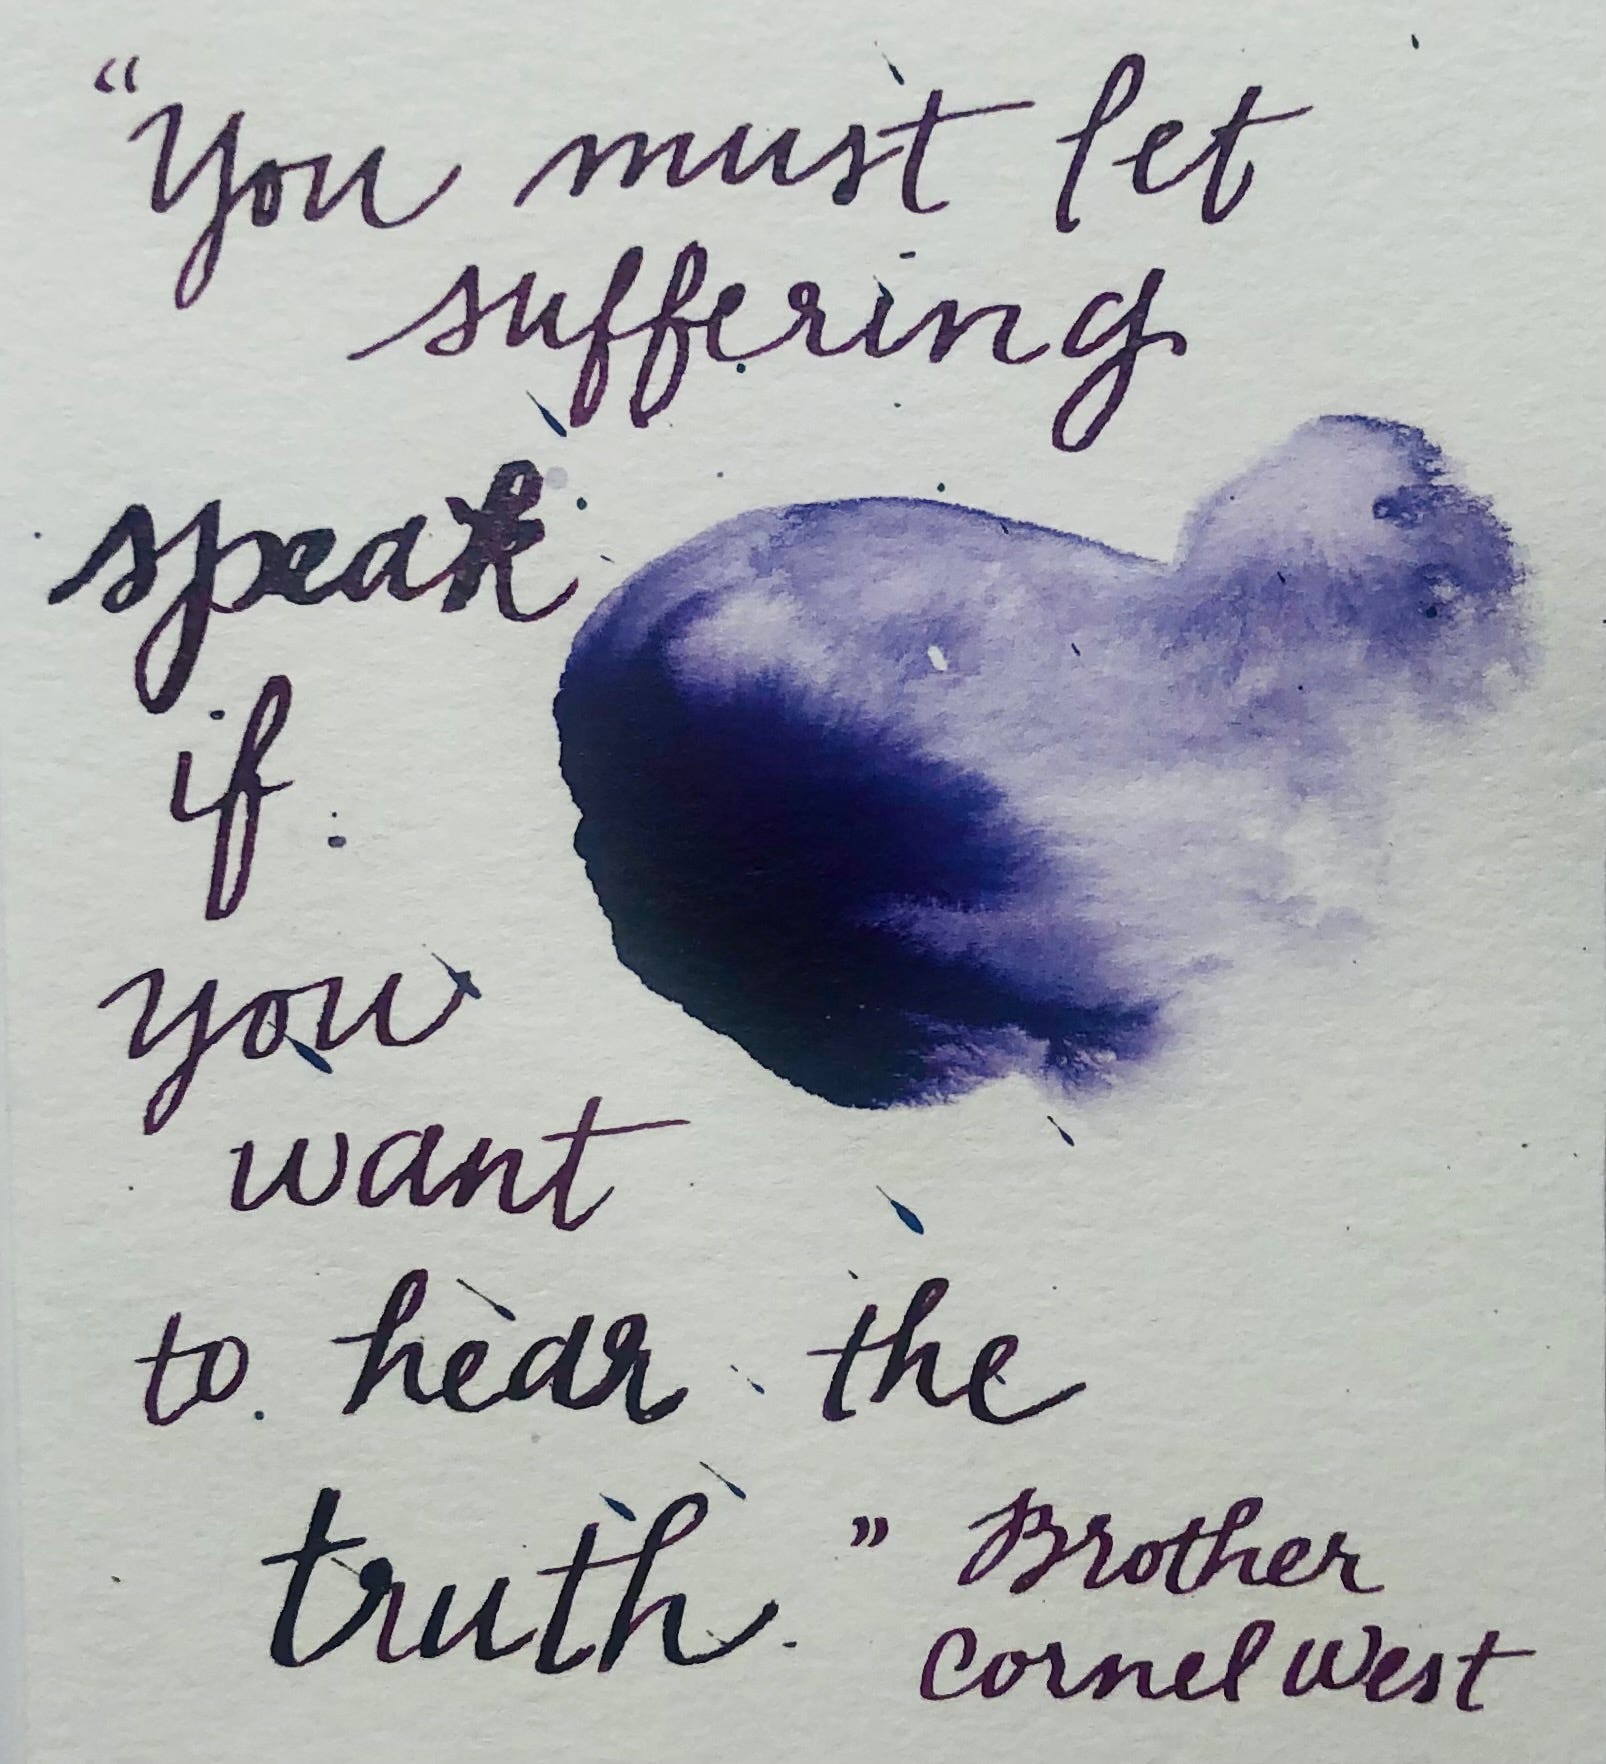 “You must let
suffering
speak
if
you
want
to hear the
truth.” Brother
Cornel West